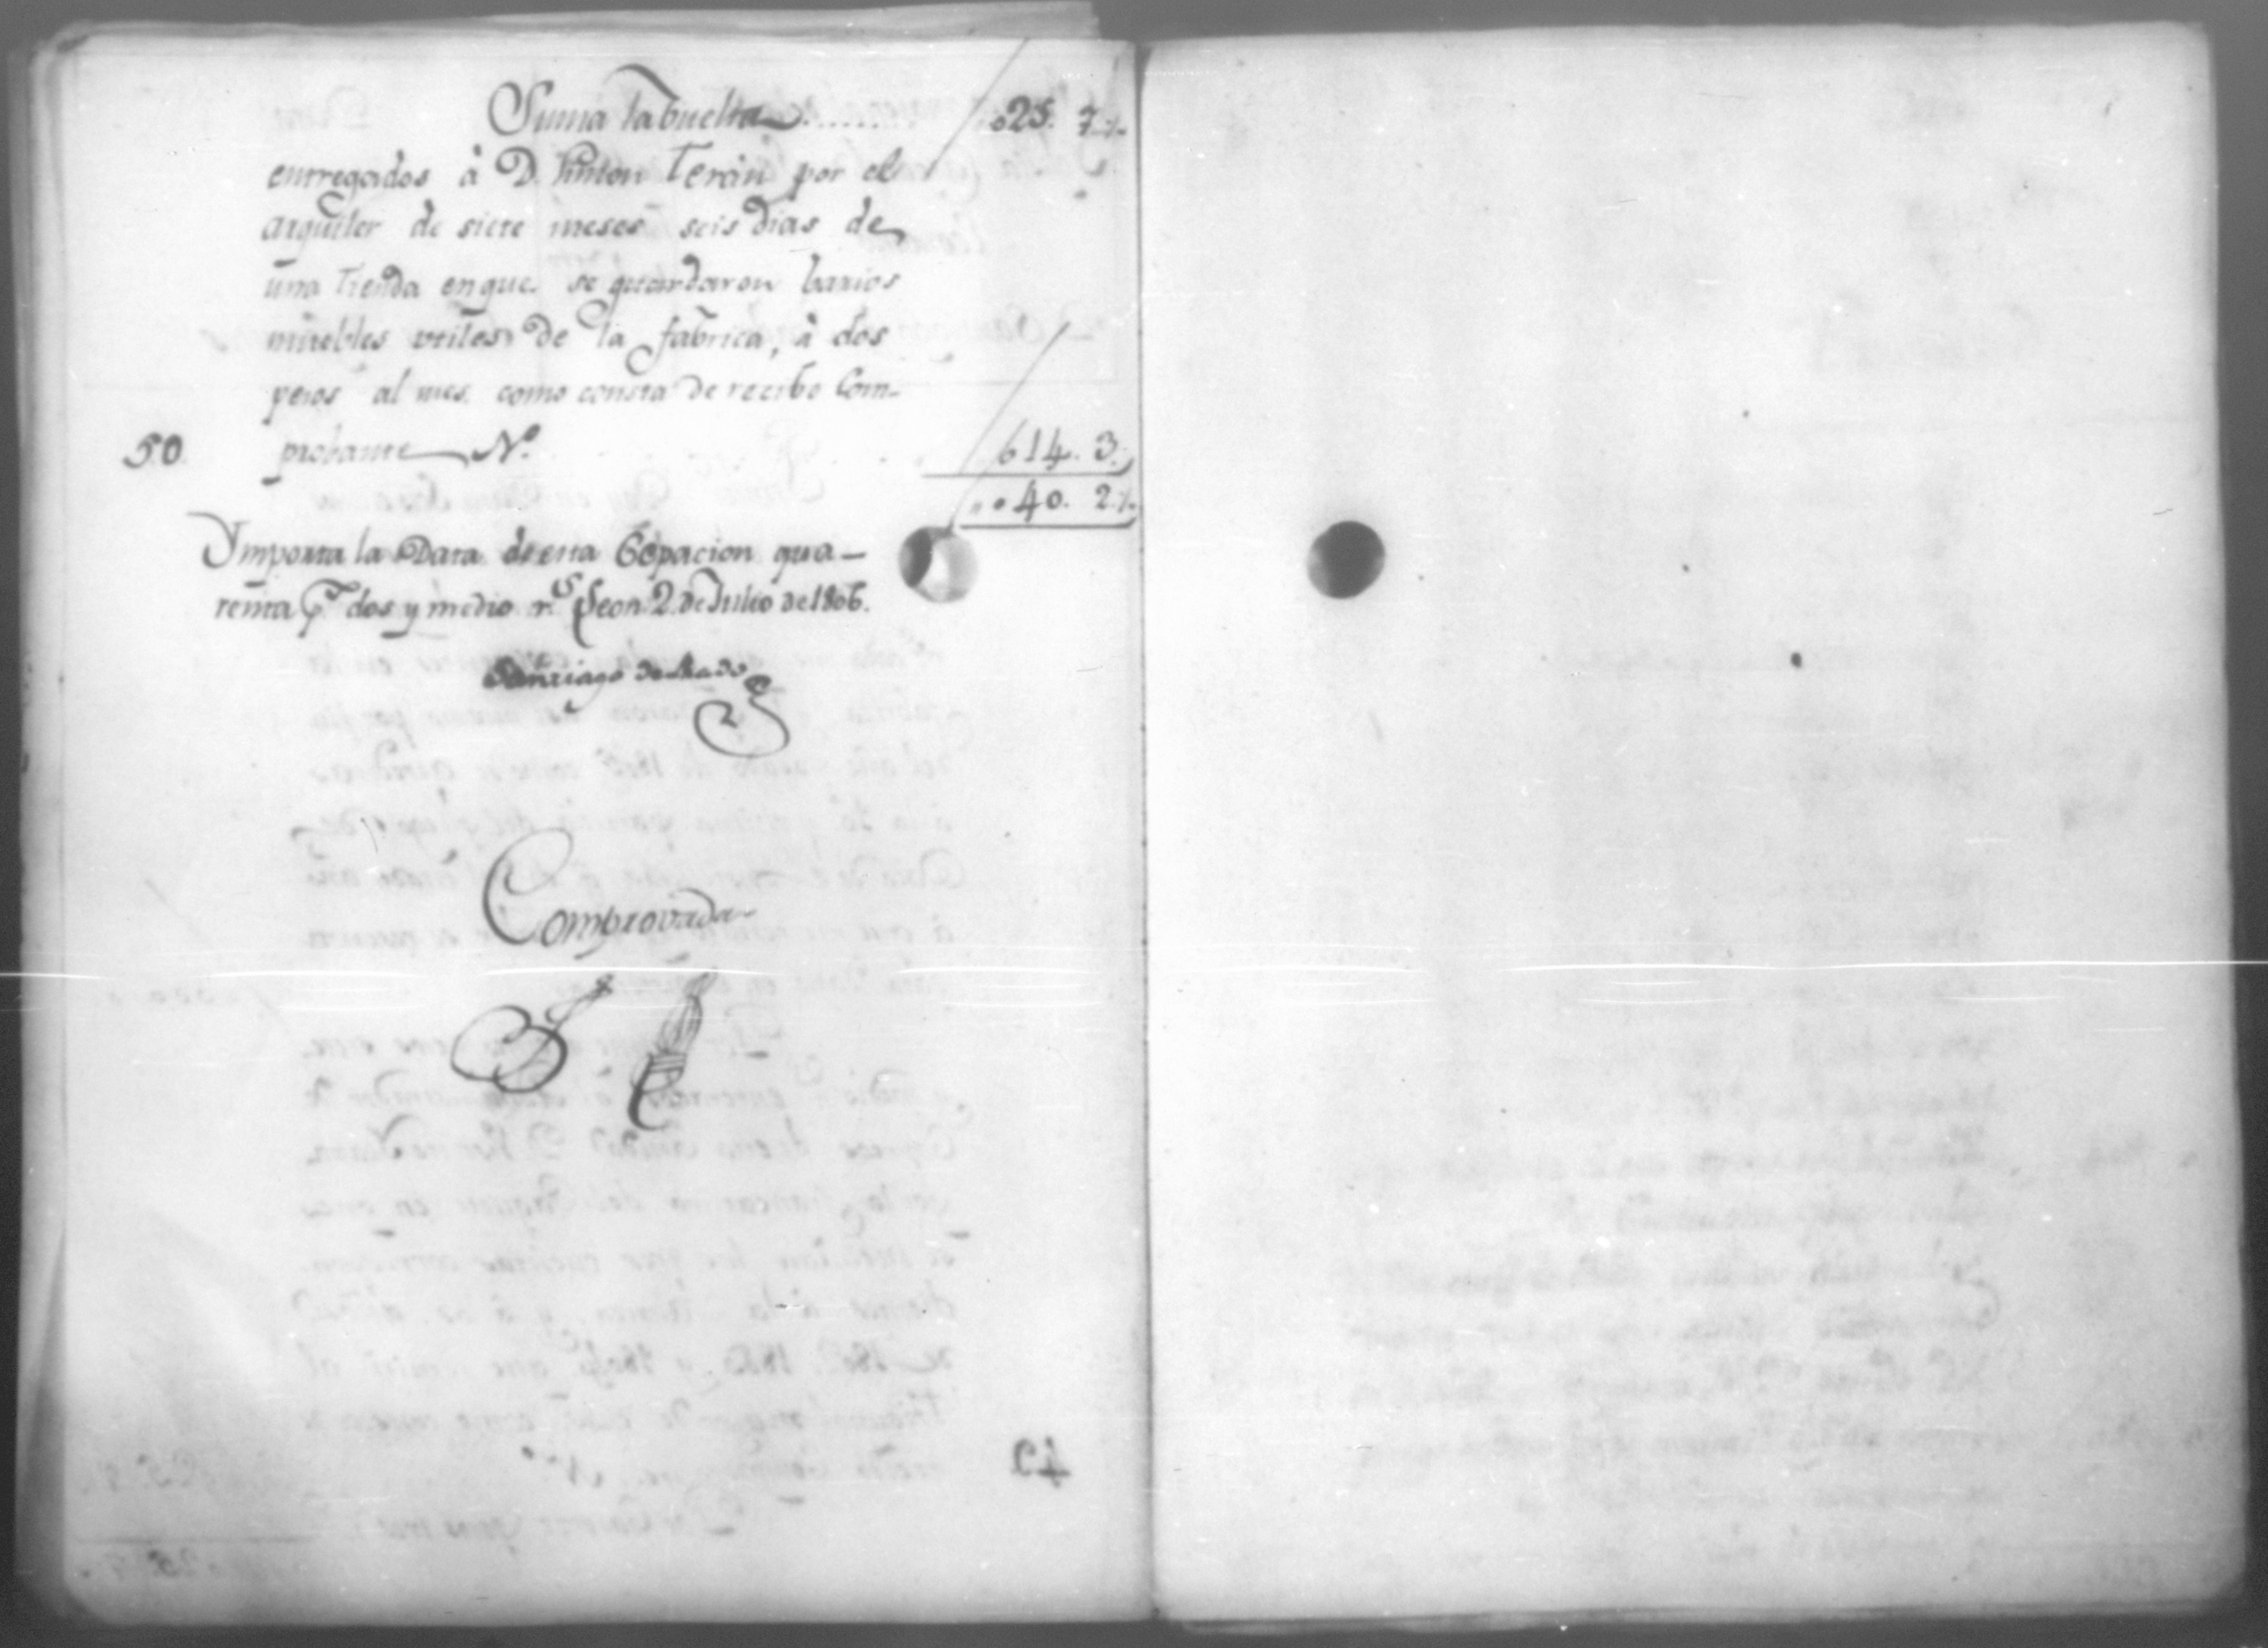 Suma labuelta....... 025. 7½
entregados à D. Anton Terán por el
arquiler de siete meses seis dias de
una tienda enque se guardaron barios
muebles utiles de la fabrica, à dos
pesos al mes, como consta de recibo Com-
50. probante Nº 614. 3.
040. 2½
Ymporta la Data de esta Copacion qua-
renta ps. dos y medio rs. Leon 2 de Julio de 1806.
Santiago de Prado
Comprovada